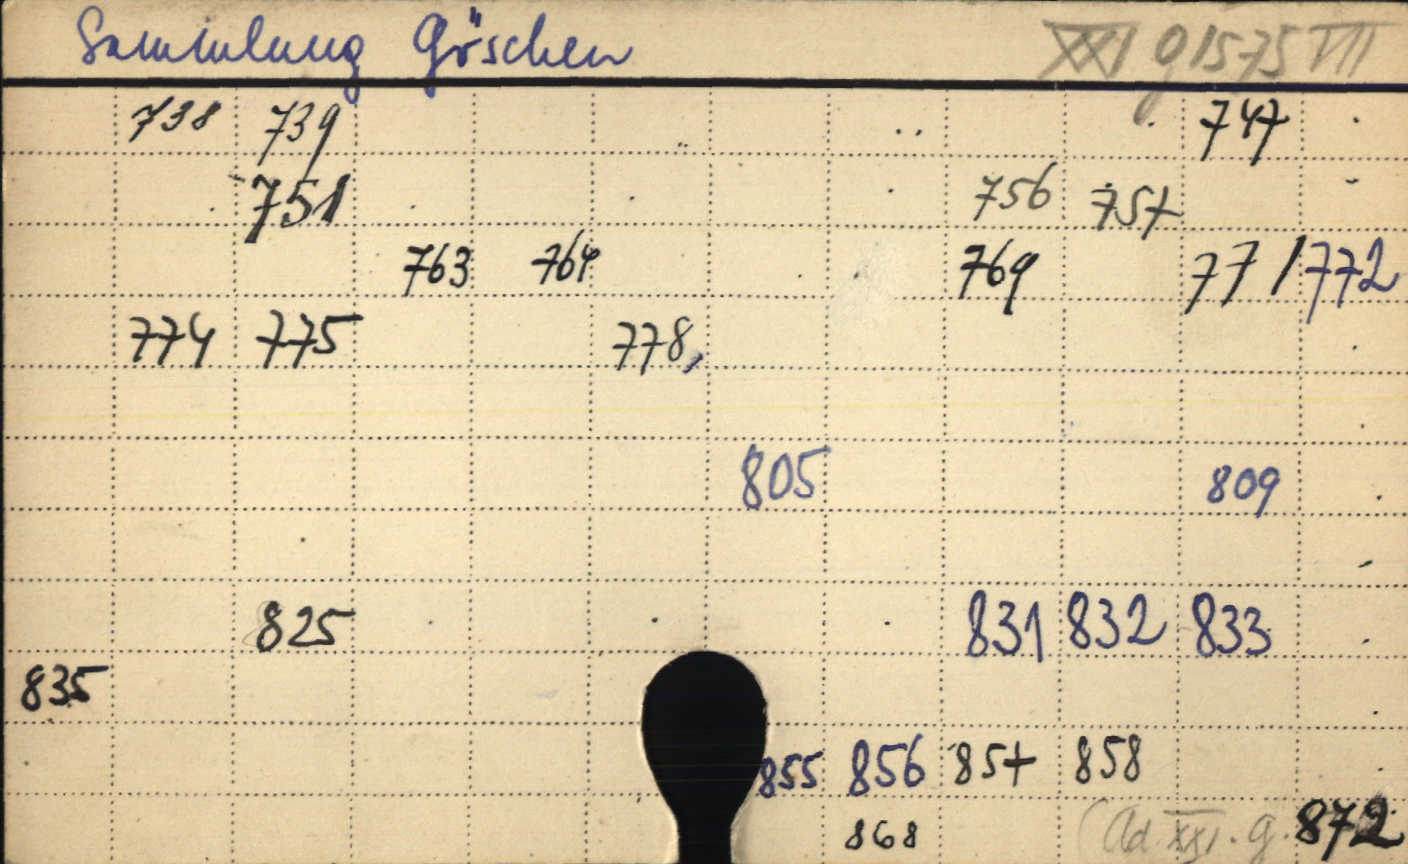 Sammlung Göschen XXI g 1575 VII
738 739 747
751 756 757
763 764 769 771 772
774 775 778,
805 809
825 831 832 833
835
855 856 857 858
868 (Ad XXI. g. 872